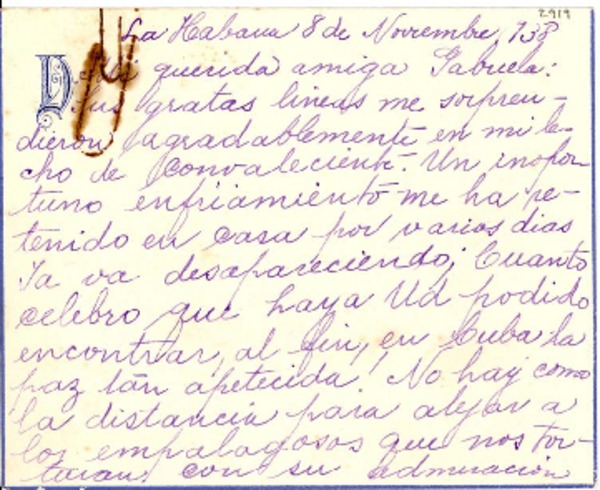 2919
La Habana 8 de Noviembre, 938
D
Mi querida amiga Gabriela:
Sus gratas líneas me sorpren-
dieron agradablemente en mi le-
cho de convaleciente. Un inopor-
tuno enfriamiento me ha re-
tenido en casa por varios dias
Ya va desapareciendo; Cuanto
celebro que haya Ud podido
encontrar, al fin, en Cuba la
paz tán apetecida! No hay como
la distancia para alejar a
los empalagosos que nos tor-
turan con su admiración